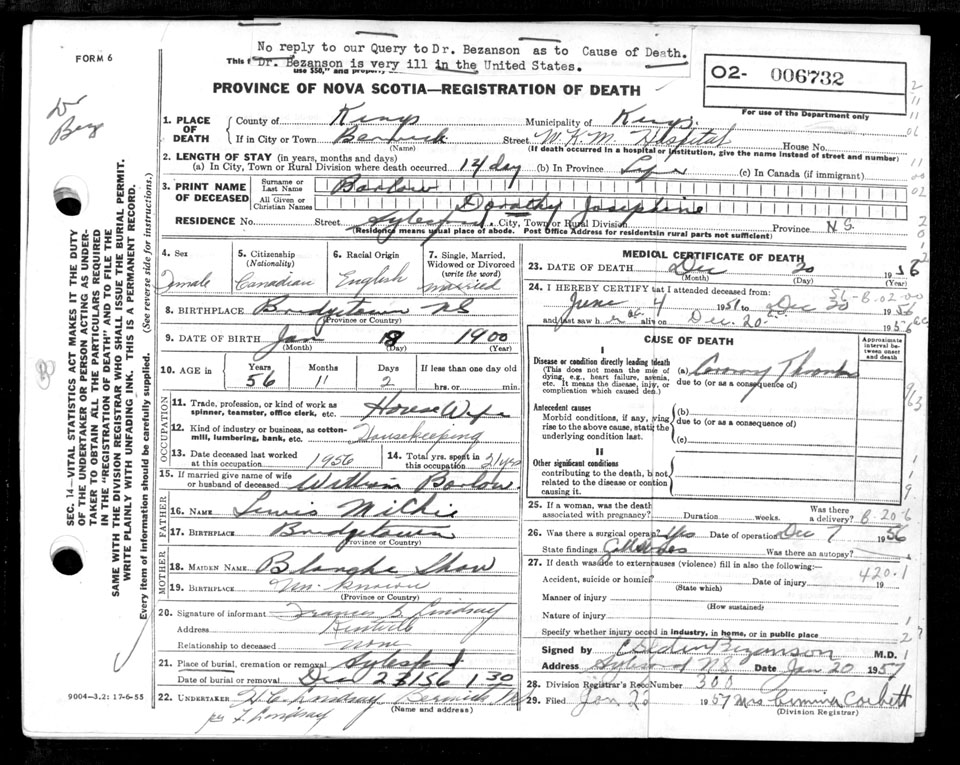 FORM 6
No reply to our Query to Dr. Bezanson as to Cause of Death.
Dr. Bezanson is very ill in the United States.
This f
use $50," and property
PROVINCE OF NOVA SCOTIA—REGISTRATION OF DEATH
O2- 006732
For use of the Department only
Dr
Bez
1. PLACE OF DEATH
County of Kings Municipality of Kings.
If in City or Town Berwick Street W.K.M. Hospital House No.
(Name) (If death occurred in a hospital or institution, give the name instead of street and number)
2. LENGTH OF STAY (in years, months and days)
(a) In City, Town or Rural Division where death occurred 14 day (b) In Province Life (c) In Canada (if immigrant)
3. PRINT NAME OF DECEASED
Surname or Last Name Barlow
All Given or Christian Names Dorothy Josephine
RESIDENCE No. Street Aylesford City, Town or Rural Division Province N.S.
(Residence means usual place of abode. Post Office Address for residents in rural parts not sufficient)
4. Sex
Female
5. Citizenship (Nationality)
Canadian
6. Racial Origin
English
7. Single, Married, Widowed or Divorced (write the word)
married
8. BIRTHPLACE Bridgetown NS
(Province or Country)
9. DATE OF BIRTH Jan 18 1900
(Month) (Day) (Year)
10. AGE IN
Years 56 Months 11 Days 2
If less than one day old
hrs. or min.
OCCUPATION
11. Trade, profession, or kind of work as spinner, teamster, office clerk, etc. House Wife
12. Kind of industry or business, as cotton-mill, lumbering, bank, etc. Housekeeping
13. Date deceased last worked at this occupation 1956
14. Total yrs. spent in this occupation 21 yrs
15. If married give name of wife or husband of deceased William Barlow.
FATHER
16. NAME Lewis
17. BIRTHPLACE Bridgetown
(Province or Country)
MOTHER
18. MAIDEN NAME Blanche Shaw
19. BIRTHPLACE un-known
(Province or Country)
20. Signature of informant Francis Lindsay
Address
Relationship to deceased none
21. Place of burial, cremation or removal Aylesford
Date of burial or removal Dec 23/56 1.30
22. UNDERTAKER H.C. Lindsay Berwick NS
per F. Lindsay
(Name and address)
9004—3.2: 17-6-55
MEDICAL CERTIFICATE OF DEATH
23. DATE OF DEATH Dec 20 1956
(Month) (Day)
24. I HEREBY CERTIFY that I attended deceased from:
June 4 1951 to Dec 20 1956
and last saw her alive on Dec. 20 1956
56-B-02-00
CAUSE OF DEATH
Approximate interval between onset and death
I
Disease or condition directly leading to death
(This does not mean the mode of dying, e.g., heart failure, asvenia, etc. It means the disease, injury, or complication which caused death.)
(a) Coronary Thrombosis
due to (or as a consequence of)
Antecedent causes
Morbid conditions, if any, giving rise to the above cause, stating the underlying condition last.
(b)
due to (or as a consequence of)
(c)
II
Other significant conditions
contributing to the death, but not related to the disease or condition causing it.
25. If a woman, was the death associated with pregnancy? Duration weeks. Was there a delivery? B-20-6
26. Was there a surgical operation? Yes Date of operation Dec 7 1956
State findings Gallstones Was there an autopsy?
420.1
27. If death was due to external causes (violence) fill in also the following:—
Accident, suicide or homicide? Date of injury 19
(State which)
Manner of injury
(How sustained)
Nature of injury
Specify whether injury occurred in industry, in home, or in public place
Signed by Bezanson M.D.
Address Aylesford NS Date Jan 20 1957
28. Division Registrar's Record Number 300
29. Filed Jan. 20 1957 Mrs Corbett
(Division Registrar)
SEC. 14—VITAL STATISTICS ACT MAKES IT THE DUTY
OF THE UNDERTAKER OR PERSON ACTING AS UNDER-
TAKER TO OBTAIN ALL THE PARTICULARS REQUIRED
IN THE "REGISTRATION OF DEATH" AND TO FILE THE
SAME WITH THE DIVISION REGISTRAR WHO SHALL ISSUE THE BURIAL PERMIT.
WRITE PLAINLY WITH UNFADING INK. THIS IS A PERMANENT RECORD.
Every item of information should be carefully supplied. (See reverse side for instructions.)